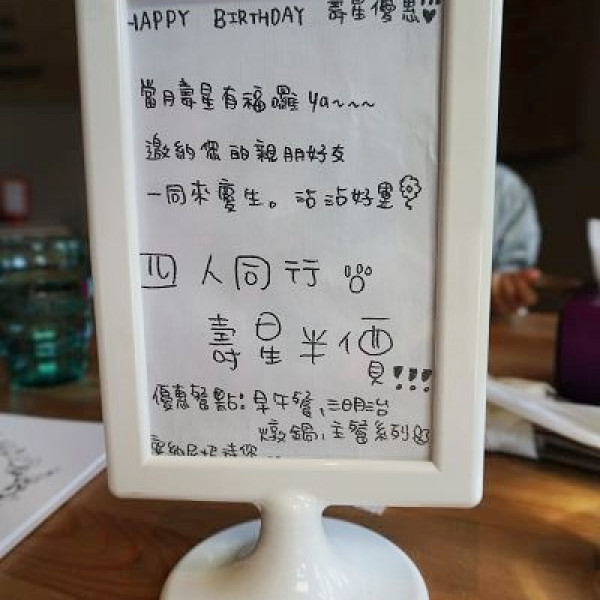 HAPPY BIRTHDAY 壽星優惠!!!
當月壽星有福囉 ya~~~
邀約您的親朋好友
一同來慶生。沾沾好運
四人同行
壽星半價!!!
優惠餐點:早午餐,三明治
燉鍋,主餐系列